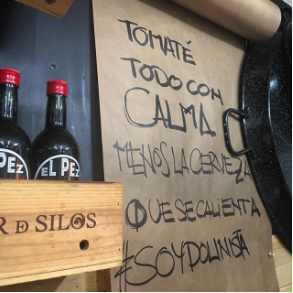 TOMATÉ
TODO CON
CALMA
MENOS LA CERVEZA
QUE SE CALIENTA
#SOYDOLINISTA
EL PEZ
EL PEZ
R D SILOS